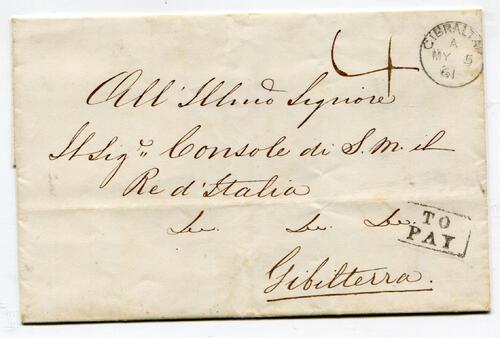 4
GIBRALTAR
A
MY 5
61
All'Illmo Signore
Il Sigr. Console di S. M. il
Re d'Italia
TO
PAY
Gibilterra.